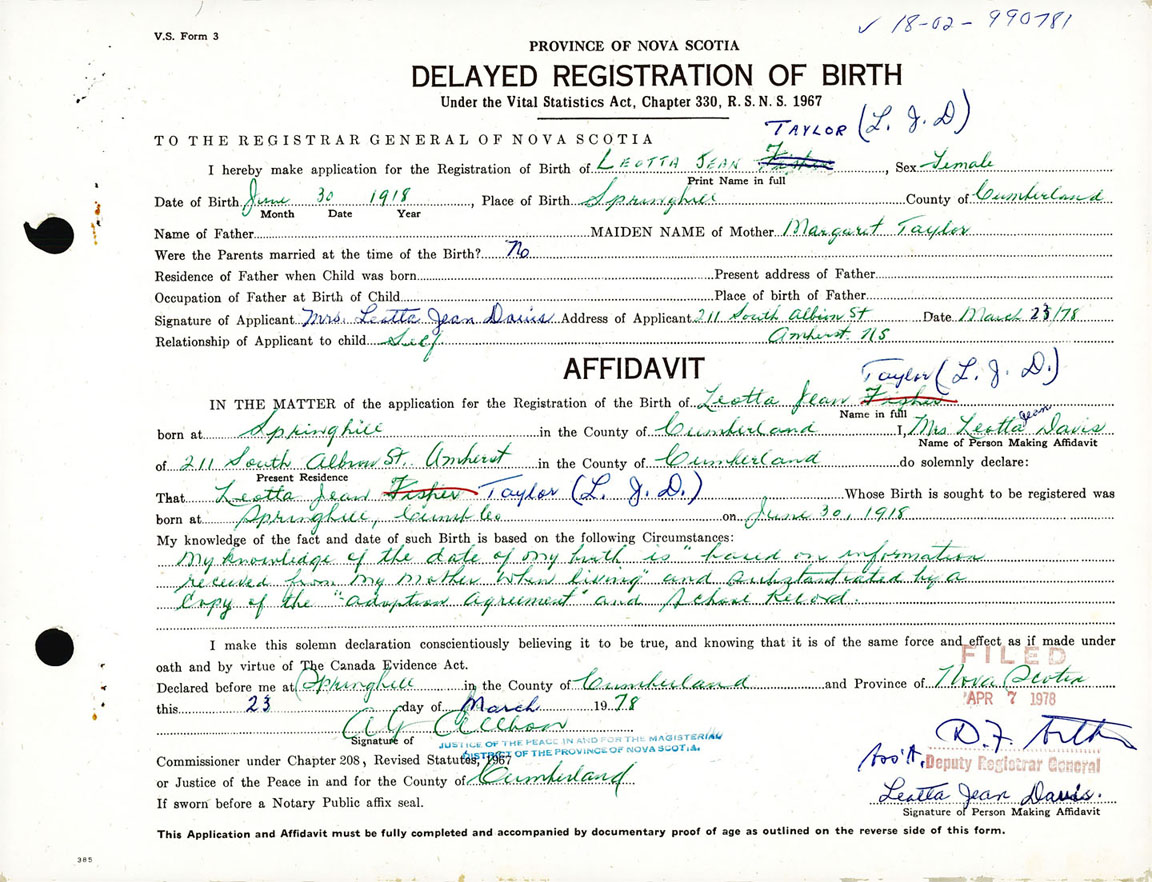 ✓ 18-02-990781
V.S. Form 3
PROVINCE OF NOVA SCOTIA
DELAYED REGISTRATION OF BIRTH
Under the Vital Statistics Act, Chapter 330, R.S.N.S. 1967
TAYLOR (L. J. D)
TO THE REGISTRAR GENERAL OF NOVA SCOTIA
I hereby make application for the Registration of Birth of LEOTTA JEAN Fisher, Sex Female
Print Name in full
Date of Birth June 30 1918, Place of Birth Springhill County of Cumberland
Month Date Year
Name of Father MAIDEN NAME of Mother Margaret Taylor
Were the Parents married at the time of the Birth? No
Residence of Father when Child was born Present address of Father
Occupation of Father at Birth of Child Place of birth of Father
Signature of Applicant Mrs. Leotta Jean Davis Address of Applicant 211 South Albion St Date March 23/78
Relationship of Applicant to child Self Amherst. NS
AFFIDAVIT
Taylor (L. J. D.)
IN THE MATTER of the application for the Registration of the Birth of Leotta Jean Fisher
Name in full
born at Springhill in the County of Cumberland I, Mrs Leotta Jean Davis
Name of Person Making Affidavit
of 211 South Albion St. Amherst in the County of Cumberland do solemnly declare:
Present Residence
That Leotta Jean Fisher Taylor (L. J. D.) Whose Birth is sought to be registered was
born at Springhill, Cumb Co on June 30, 1918
My knowledge of the fact and date of such Birth is based on the following Circumstances:
My knowledge of the date of my birth is "based on information
received from my mother when living" and substantiated by a
Copy of the "adoption agreement" and School Record.
I make this solemn declaration conscientiously believing it to be true, and knowing that it is of the same force and effect as if made under
oath and by virtue of The Canada Evidence Act.
FILED
Declared before me at Springhill in the County of Cumberland and Province of Nova Scotia
APR 7 1978
this 23 day of March 1978
Signature of
JUSTICE OF THE PEACE IN AND FOR THE MAGISTERIAL
DISTRICT OF THE PROVINCE OF NOVA SCOTIA.
D.F.
Commissioner under Chapter 208, Revised Statutes, 1967
Ass't. Deputy Registrar General
or Justice of the Peace in and for the County of Cumberland
Leotta Jean Davis.
If sworn before a Notary Public affix seal.
Signature of Person Making Affidavit
This Application and Affidavit must be fully completed and accompanied by documentary proof of age as outlined on the reverse side of this form.
385